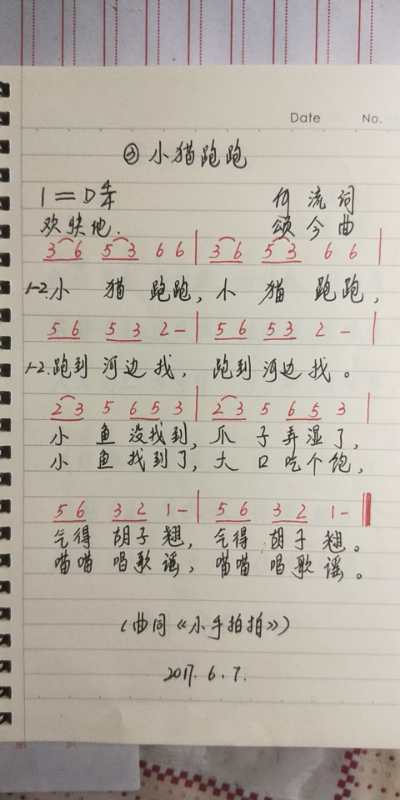 Date No.
② 小猫跑跑
1=D 4/4 何流词
欢快地. 颂今曲
3 6 5 3 6 6 | 3 6 5 3 6 6 |
1-2.小 猫 跑跑, 小 猫 跑跑,
5 6 5 3 2 - | 5 6 5 3 2 - |
1-2.跑到 河边 找, 跑到 河边 找。
2 3 5 6 5 3 | 2 3 5 6 5 3 |
小 鱼 没找到, 爪 子 弄湿了,
小 鱼 找到了, 大 口 吃个饱,
5 6 3 2 1 - | 5 6 3 2 1 - ‖
气得 胡子 翘, 气得 胡子 翘。
喵喵 唱歌 谣, 喵喵 唱歌 谣。
(曲同《小手拍拍》)
2017. 6. 7.